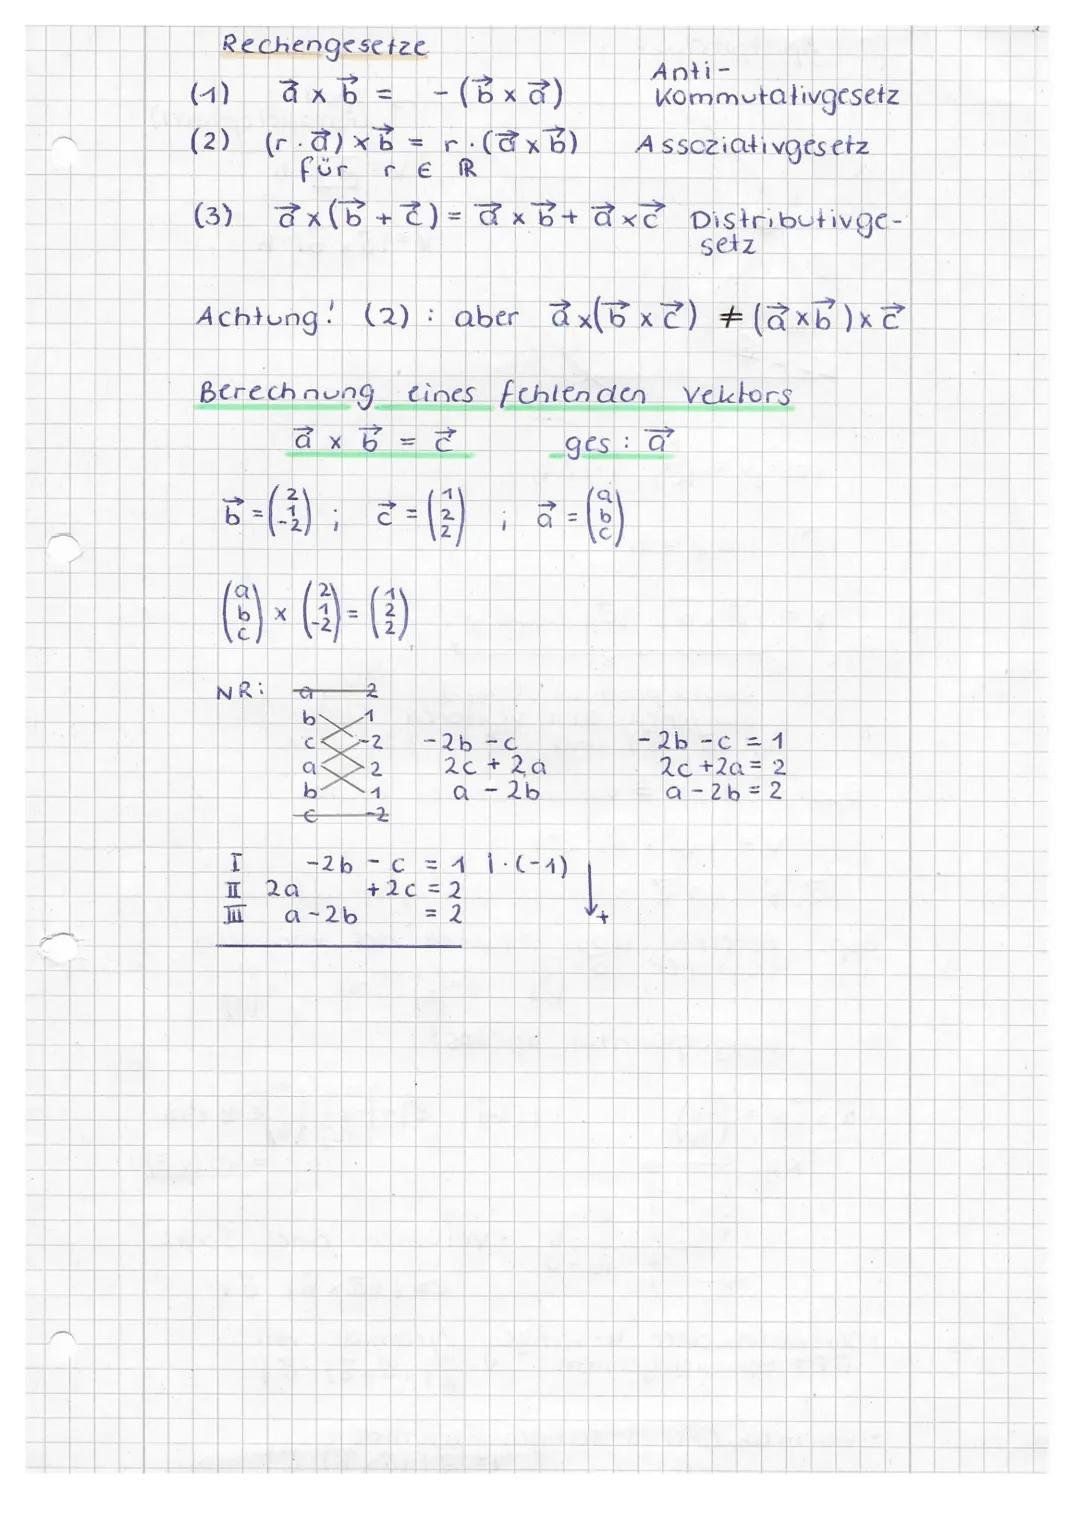 Rechengesetze
(1) a⃗ × b⃗ = - (b⃗ × a⃗) Anti-
Kommutativgesetz
(2) (r · a⃗) × b⃗ = r · (a⃗ × b⃗) Assoziativgesetz
für r ∈ ℝ
(3) a⃗ × (b⃗ + c⃗) = a⃗ × b⃗ + a⃗ × c⃗ Distributivge-
setz
Achtung! (2) : aber a⃗ × (b⃗ × c⃗) ≠ (a⃗ × b⃗) × c⃗
Berechnung eines fehlenden Vektors
a⃗ × b⃗ = c⃗ ges : a⃗
b⃗ = (2 1 -2) ; c⃗ = (1 2 2) ; a⃗ = (a b c)
(a b c) × (2 1 -2) = (1 2 2)
NR: a 2
b 1
c -2 -2b - c - 2b - c = 1
a 2 2c + 2a 2c + 2a = 2
b 1 a - 2b a - 2b = 2
c -2
I -2b - c = 1 | · (-1)
II 2a + 2c = 2
III a - 2b = 2 +